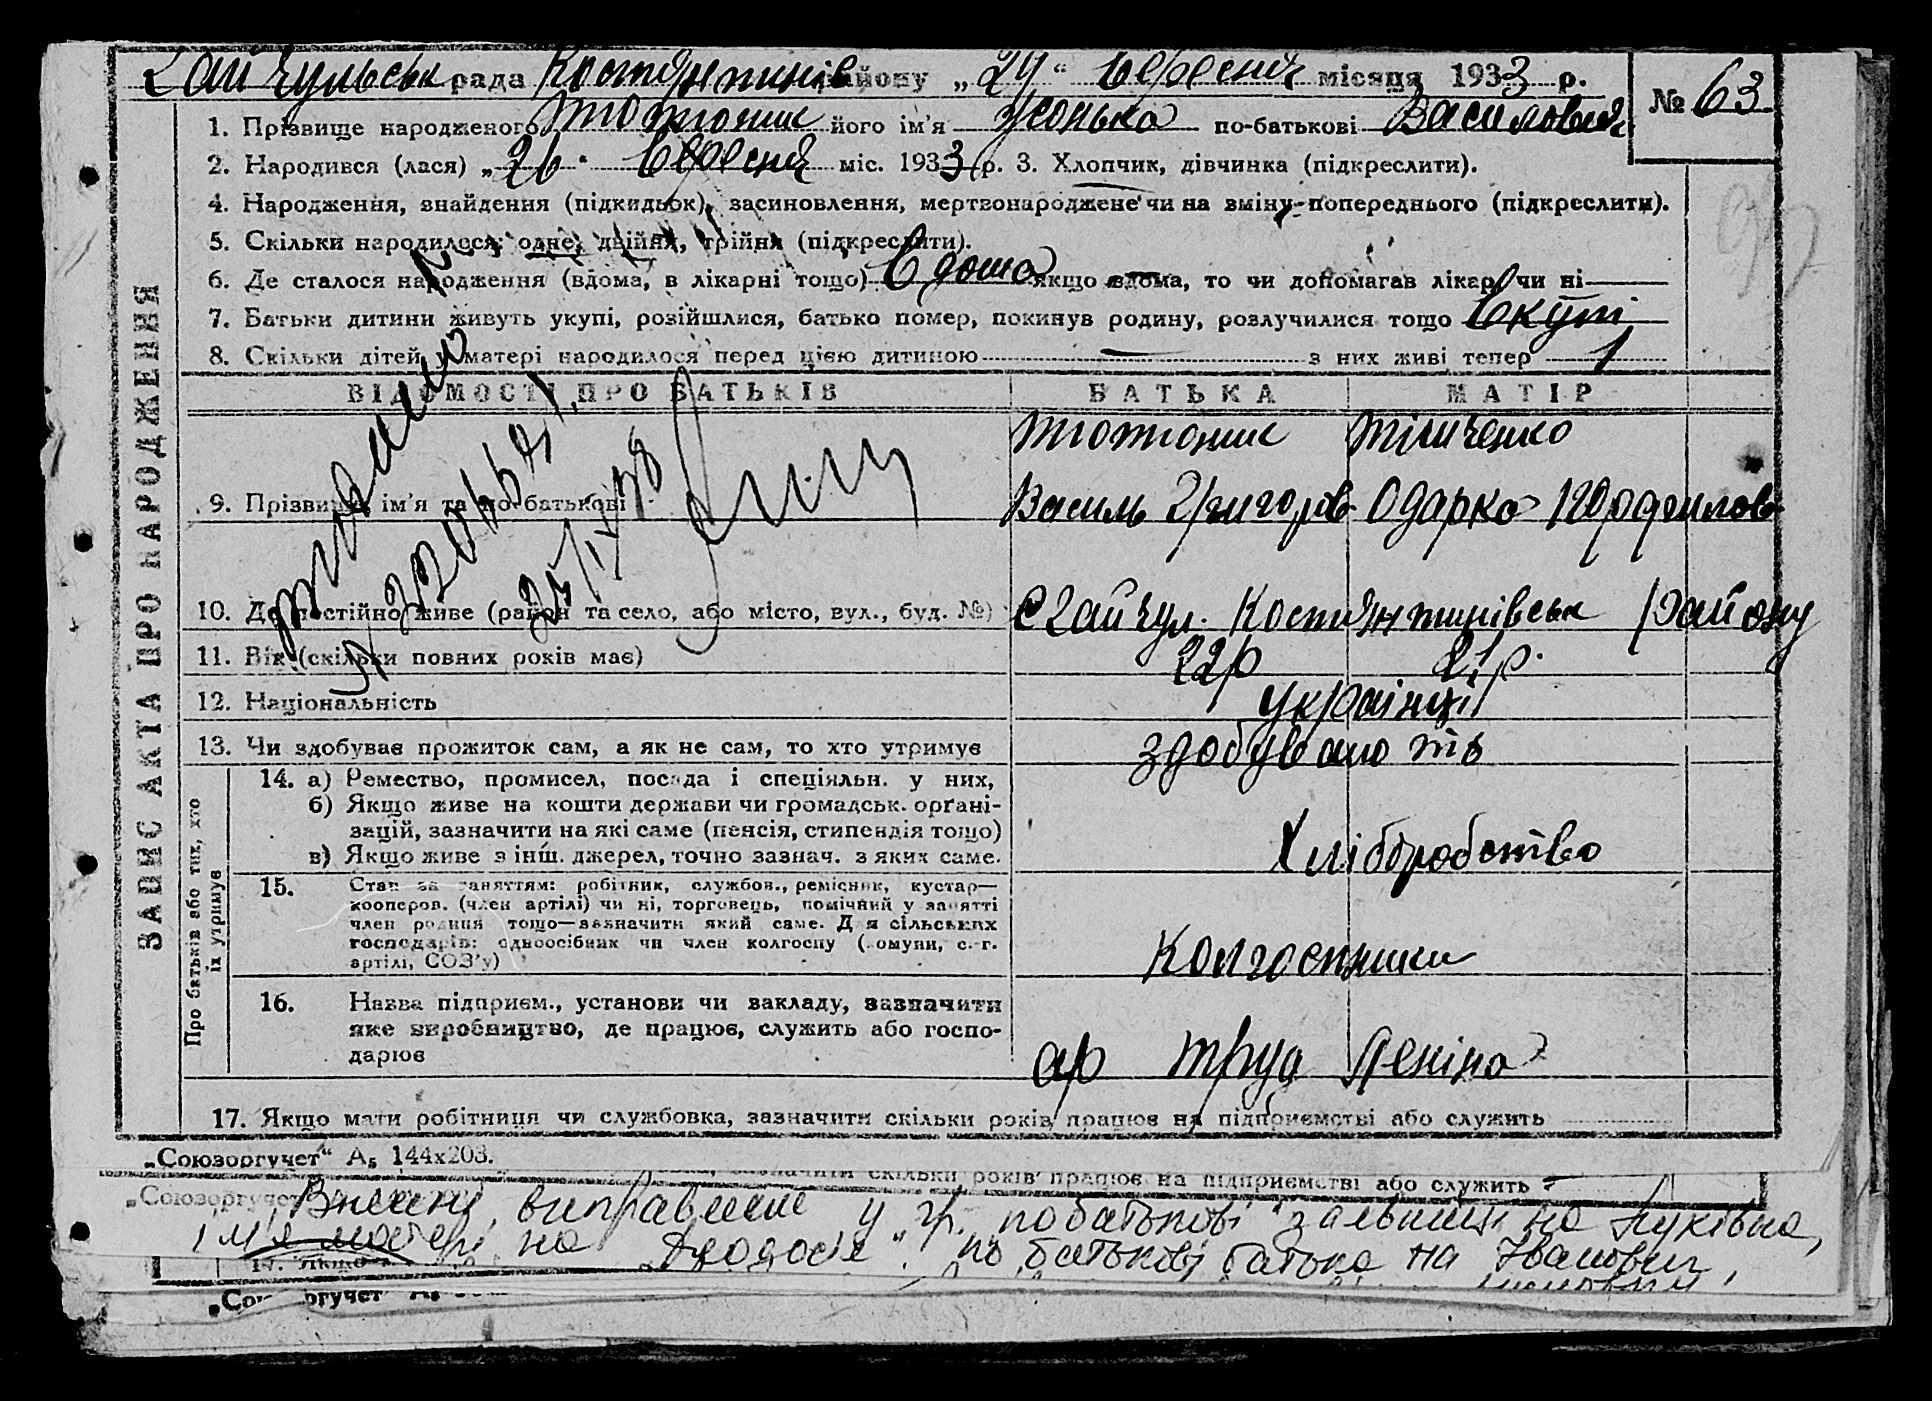 Гайчульськ рада Костянтинів району „24“ вересня місяця 1933 р.
№ 63
1. Прізвище народженого Тютюник його ім'я по-батькові Василовна
2. Народився (лася) „26“ вересня міс. 1933 р. 3. Хлопчик, дівчинка (підкреслити).
4. Народження, знайдення (підкидьок), засиновлення, мертвонароджене чи на зміну попереднього (підкреслити).
5. Скільки народилося: одне, двійня, трійня (підкреслити).
6. Де сталося народження (вдома, в лікарні тощо) вдома якщо вдома, то чи допомагав лікар чи ні
7. Батьки дитини живуть укупі, розійшлися, батько помер, покинув родину, розлучилися тощо вкупі
8. Скільки дітей у матері народилося перед цією дитиною — з них живі тепер 1
ВІДОМОСТІ ПРО БАТЬКІВ БАТЬКА МАТІР
Тютюник Тімченко
9. Прізвище, ім'я та по-батькові Василь Григоров Одарка
10. Де постійно живе (район та село, або місто, вул., буд. №) с Гайчул. Костянтинівськ району
11. Вік (скільки повних років має) 22р 21р.
12. Національність українці
13. Чи здобуває прожиток сам, а як не сам, то хто утримує здобувають
ЗАПИС АКТА ПРО НАРОДЖЕННЯ
Про батьків або тих, хто їх утримує
14. а) Ремество, промисел, посада і спеціяльн. у них,
б) Якщо живе на кошти держави чи громадськ. орґані-
зацій, зазначити на які саме (пенсія, стипендія тощо)
в) Якщо живе з інш. джерел, точно зазнач. з яких саме.
Хлібробство
15. Стан за заняттям: робітник, службов., ремісник, кустар—
кооперов. (член артілі) чи ні, торговець, помічний у занятті
член родини тощо—зазначити який саме. Для сільських
господарів: одноосібник чи член колгоспу (комуни, с.-г.
артілі, СОЗ'у)
Колгоспники
16. Назва підприєм., установи чи закладу, зазначити
яке виробництво, де працює, служить або госпо-
дарює
ар труд Леніна
17. Якщо мати робітниця чи службовка, зазначити скільки років працює на підприємстві або служить
„Союзоргучет“ А₅ 144х203.
зазначити скільки років працює на підприємстві або служить
„Союзоргучет“ Внесені виправлення у гр. по батькові на Луківна,
ім'я матері на „ по батькові батька на Іванович,
17. Якщо
„Союзоргучет“